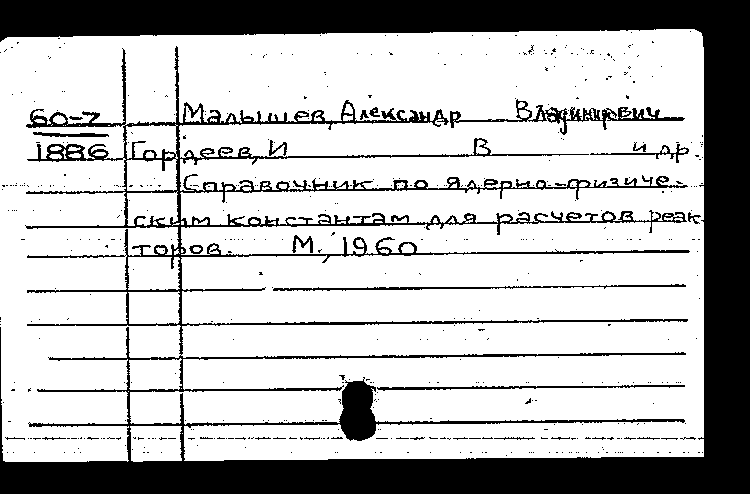 60-7 Малышев, Александр Владимирович
1886 Гордеев, И В и др.
Справочник по ядерно-физиче-
ским константам для расчетов реак-
торов. М., 1960